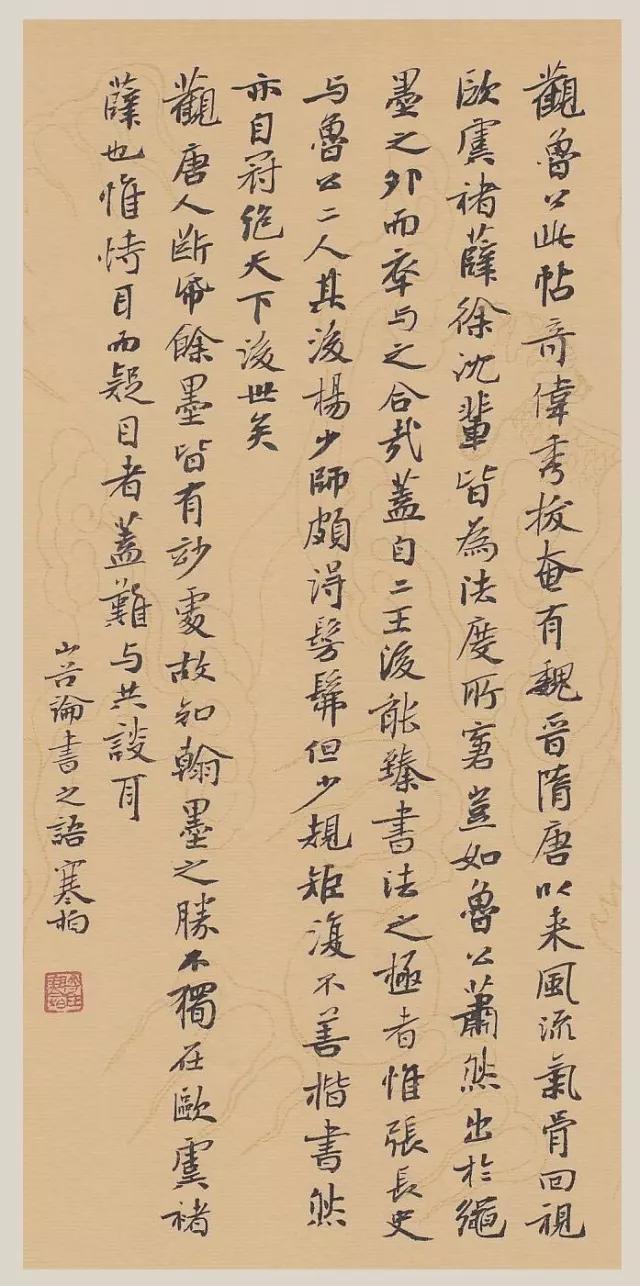 觀魯公此帖奇偉秀拔奄有魏晉隋唐以来風流氣骨回視
歐虞褚薛徐沈輩皆為法度所窘豈如魯公蕭然出於繩
墨之外而卒与之合哉蓋自二王後能臻書法之極者惟張長史
与魯公二人其後楊少師頗得髣髴但少規矩復不善楷書然
亦自冠絶天下後世矣
觀唐人斷帋餘墨皆有妙處故知翰墨之勝不獨在歐虞褚
薛也惟恃耳而疑目者蓋難与共談耳
山谷論書之語寒柏